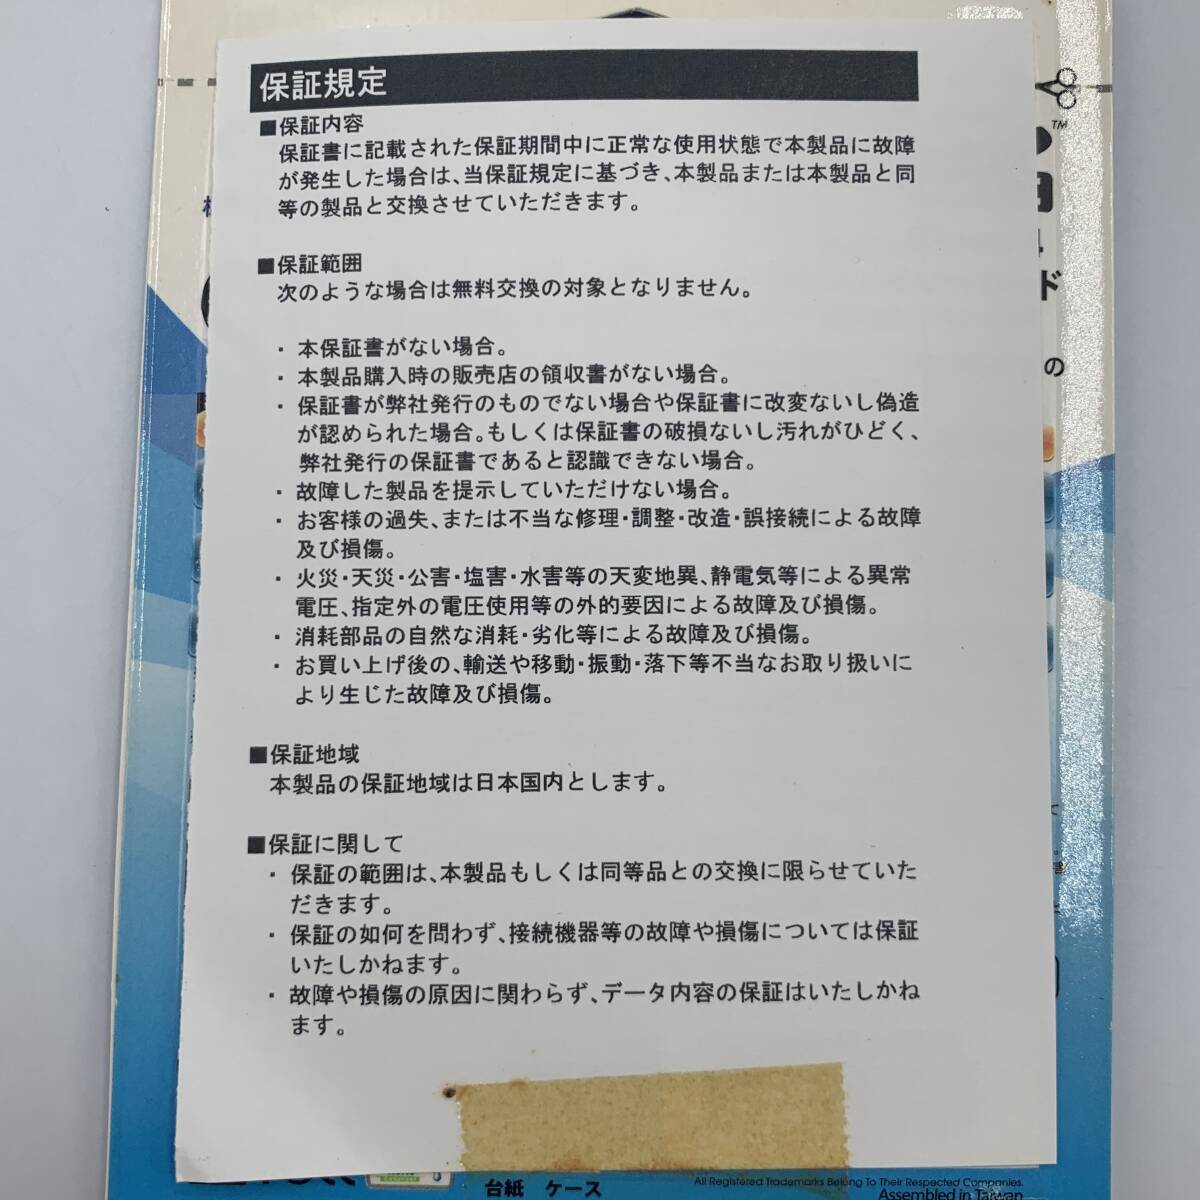 保証規定
■保証内容
保証書に記載された保証期間中に正常な使用状態で本製品に故障
が発生した場合は、当保証規定に基づき、本製品または本製品と同
等の製品と交換させていただきます。
■保証範囲
次のような場合は無料交換の対象となりません。
・ 本保証書がない場合。
・ 本製品購入時の販売店の領収書がない場合。
・ 保証書が弊社発行のものでない場合や保証書に改変ないし偽造
が認められた場合。もしくは保証書の破損ないし汚れがひどく、
弊社発行の保証書であると認識できない場合。
・ 故障した製品を提示していただけない場合。
・ お客様の過失、または不当な修理・調整・改造・誤接続による故障
及び損傷。
・ 火災・天災・公害・塩害・水害等の天変地異、静電気等による異常
電圧、指定外の電圧使用等の外的要因による故障及び損傷。
・ 消耗部品の自然な消耗・劣化等による故障及び損傷。
・ お買い上げ後の、輸送や移動・振動・落下等不当なお取り扱いに
より生じた故障及び損傷。
■保証地域
本製品の保証地域は日本国内とします。
■保証に関して
・ 保証の範囲は、本製品もしくは同等品との交換に限らせていた
だきます。
・ 保証の如何を問わず、接続機器等の故障や損傷については保証
いたしかねます。
・ 故障や損傷の原因に関わらず、データ内容の保証はいたしかね
ます。
TM
ド
の
台紙 ケース
All Registered Trademarks Belong To Their Respected Companies.
Assembled in Taiwan